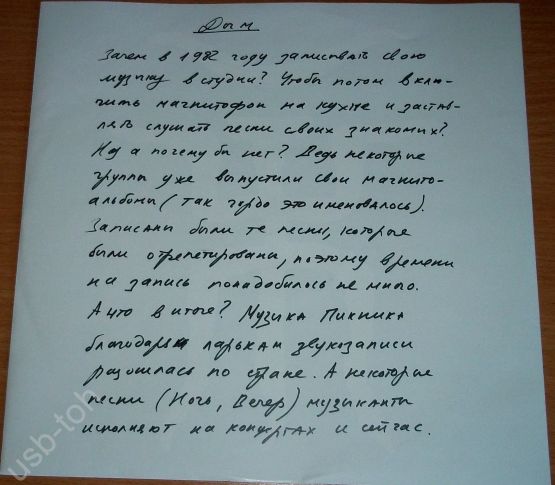 Дым
Зачем в 1982 году записывать свою
музыку в студии? Чтобы потом вклю-
чить магнитофон на кухне и застав-
лять слушать песни своих знакомых?
Ну а почему бы нет? Ведь некоторые
группы уже выпустили свои магнито-
альбомы (так гордо это именовалось).
Записаны были те песни, которые
были отрепетированы, поэтому времени
на запись понадобилось не много.
А что в итоге? Музыка Пикника
благодаря ларькам звукозаписи
разошлась по стране. А некоторые
песни (Ночь, Вечер) музыканты
исполняют на концертах и сейчас.
usb-toh